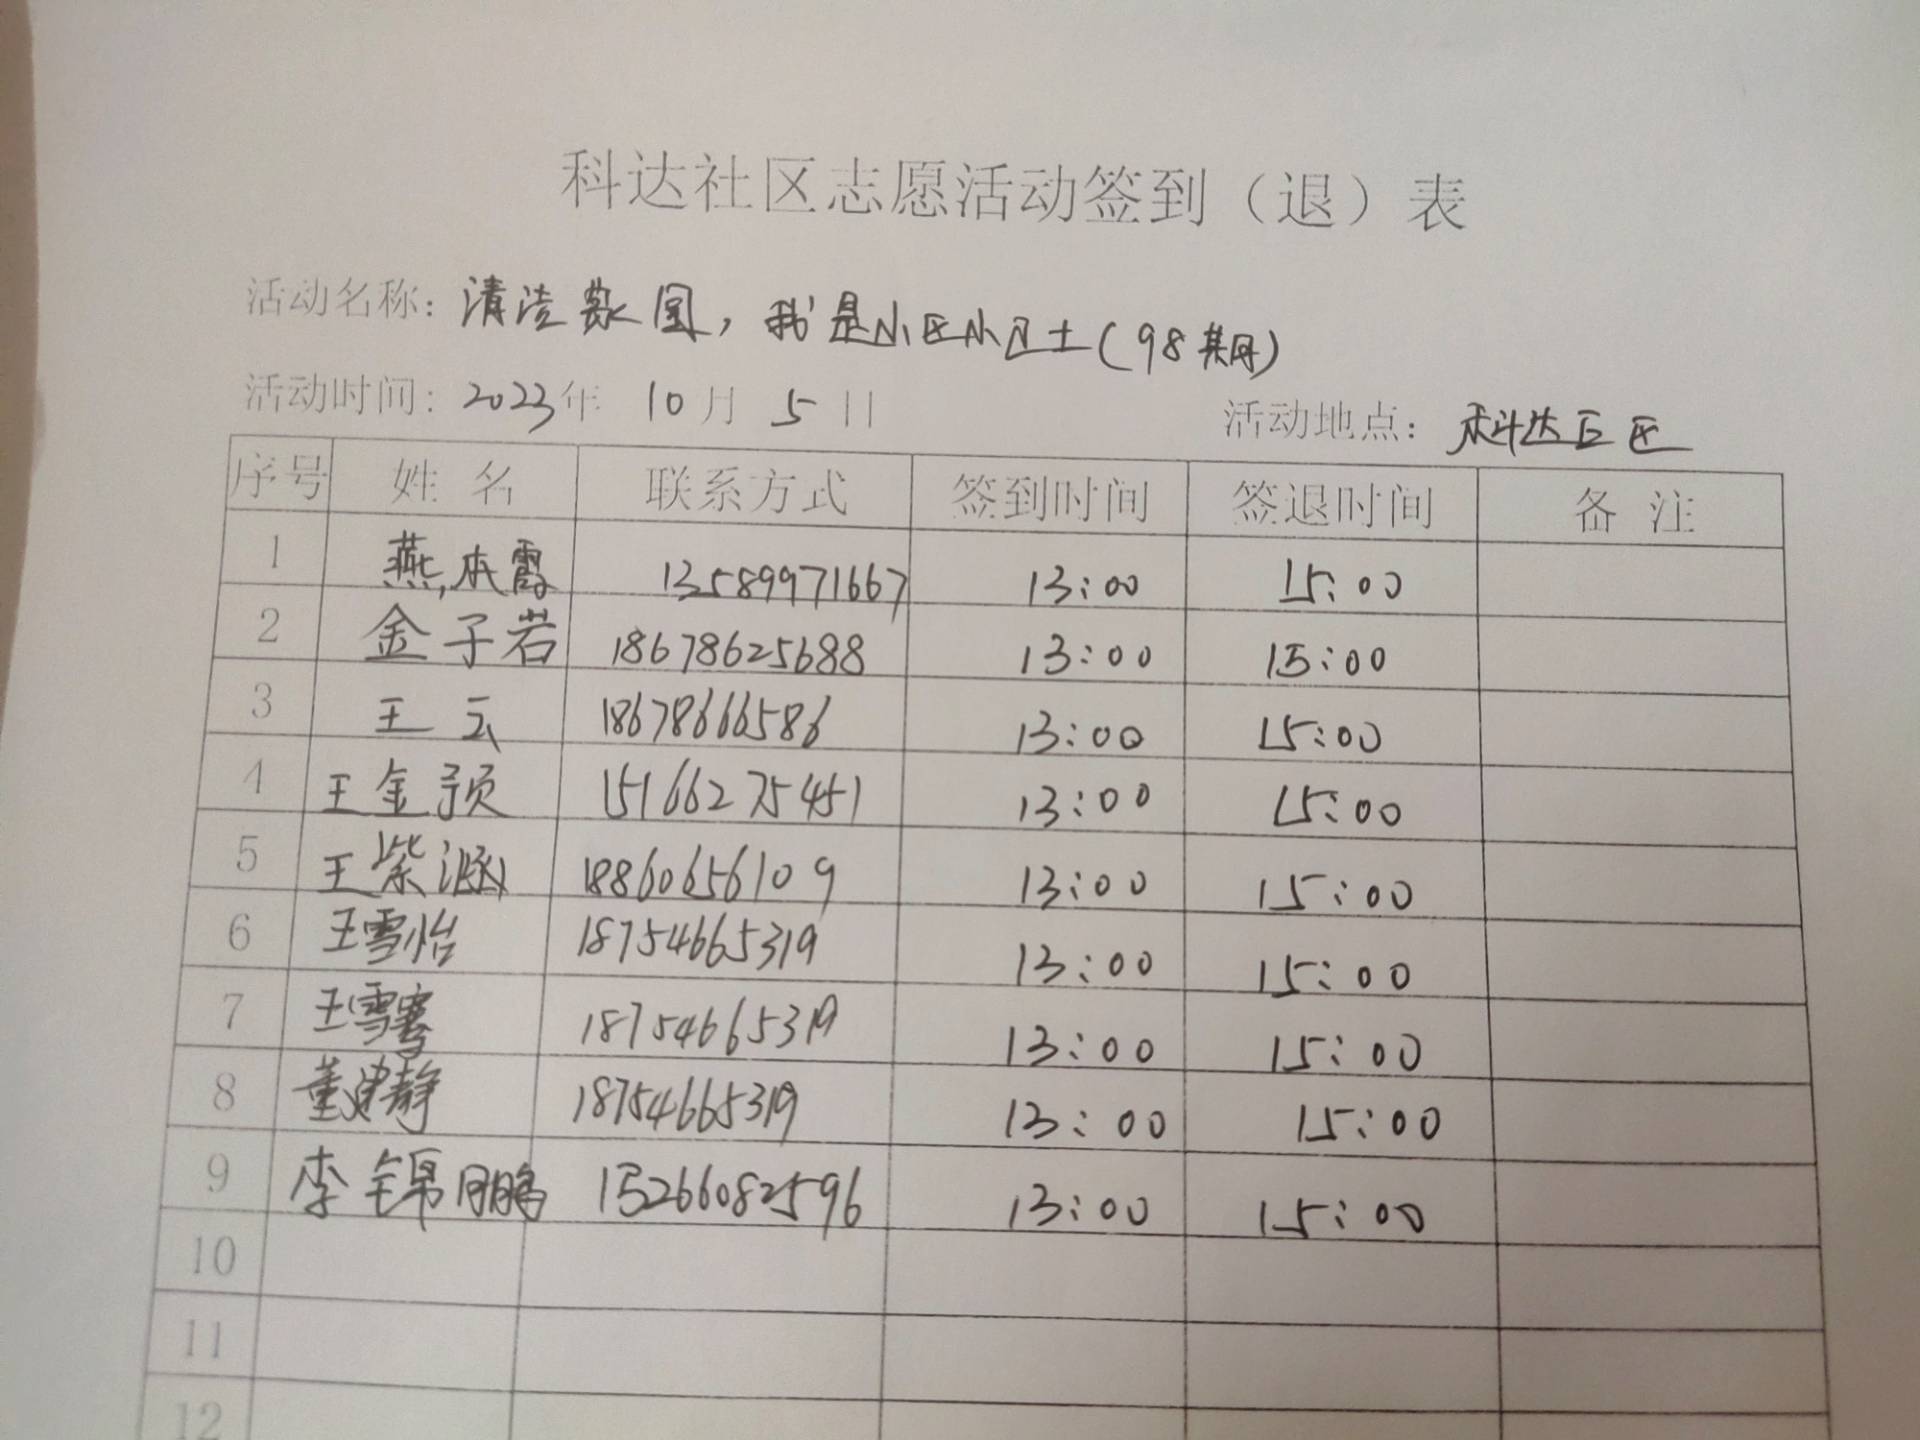 科达社区志愿活动签到（退）表
活动名称：清洁家园，我是小区小卫士(98期)
活动时间：2023年 10月 5日 活动地点：科达B区
序号 姓 名 联系方式 签到时间 签退时间 备 注
1 燕本霞 13589971667 13:00 15:00
2 金子岩 18678625688 13:00 15:00
3 王云 18678666586 13:00 15:00
4 王金预 15166275451 13:00 15:00
5 王紫涵 18860656109 13:00 15:00
6 王雪怡 18754665319 13:00 15:00
7 18754665319 13:00 15:00
8 董建静 18754665319 13:00 15:00
9 李锦鹏 15266082596 13:00 15:00
10
11
12